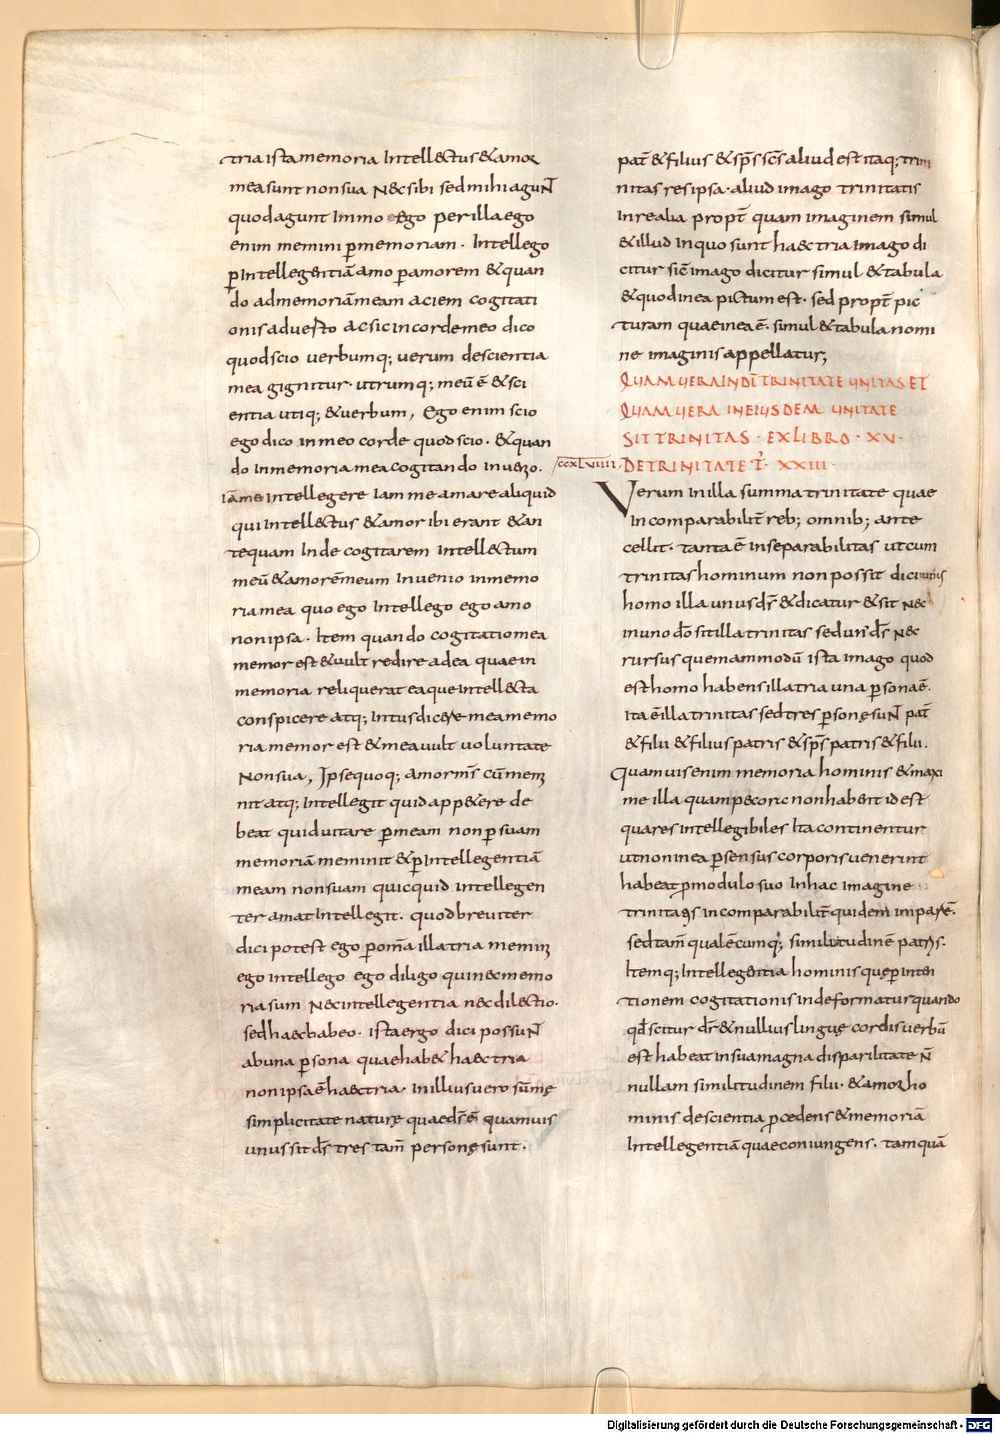 tria ista memoria intellectus & amor
mea sunt non sua nec sibi sed mihi aguN̄
quod agunt Immo ego per illa ego
enim memini p̄ memoriam. Intellego
p̄ Intellegentiā amo p̄ amorem & quan
do ad memoriā meam aciem cogitati
onis aduerto ac sic in corde meo dico
quod scio uerbumq; uerum de scientia
mea gignitur utrumq; meū ē & sci
entia utiq; & uerbum, Ego enim scio
ego dico in meo corde quod scio. & quan
do in memoria mea cogitando inuenio.
iā me intellegere iam me amare aliquid
qui intellectus & amor ibi erant & an
tequam inde cogitarem intellectum
meū & amorē meum inuenio in memo
ria mea quo ego intellego ego amo
non ipsa. Item quando cogitatio mea
memor est & uult redire ad ea quae in
memoria reliquerat eaque intellecta
conspicere atq; intus dicere mea memo
ria memor est & mea uult uoluntate
Non sua, Ipse quoq; amor m̄s cū memi
nit atq; intellegit quid app&ere de
beat quid uitare p̄ meam non p̄ suam
memoriā meminit & p̄ intellegentiā
meam non suam quicquid intellegen
ter amat intellegit. quod breuiter
dici potest ego p̄ om̄a illa tria memini
ego intellego ego diligo qui nec memo
ria sum nec intellegentia nec dilectio.
sed haec habeo. ista ergo dici possuN̄
ab una p̄sona quae hab& haec tria
non ipsa ē haec tria. In illius uero sūmę
simplicitate naturę quae d̄s ē quamuis
unus sit d̄s tres tam̄ personę sunt.
pat̄ & filius & sp̄s sc̄s aliud est itaq; tri
nitas res ipsa. aliud imago trinitatis
in re alia propt̄ quam imaginem simul
& illud in quo sunt haec tria imago di
citur sic̄ imago dicitur simul & tabula
& quod in ea pictum est. sed propt̄ pic
turam quae in ea ē. simul & tabula nomi
ne imaginis appellatur;
QUAM UERA IN D̄I TRINITATE UNITAS ET
QUAM UERA IN EIUSDEM UNITATE
SIT TRINITAS. EX LIBRO. XV.
ccxlviiii DE TRINITATE T̄. XXIII.
Verum in illa summa trinitate quae
incomparabilit̄ reb; omnib; ante
cellit. tanta ē inseparabilitas ut cum
trinitas hominum non possit dici unus
homo illa unus d̄s & dicatur & sit nec
in uno d̄o sit illa trinitas sed un' d̄s nec
rursus quemammodū ista imago quod
est homo habens illa tria una p̄sona ē.
Ita ē illa trinitas sed tres p̄sonę suN̄ pat̄
& filii & filius patris & sp̄s patris & filii.
Quamuis enim memoria hominis & maxi
me illa quam pecora non habent id est
qua res intellegibiles ita continentur
ut non in ea p̄ sensus corporis uenerint
habeat p̄ modulo suo in hac imagine
trinitatis incomparabilit̄ quidem imparē.
sed tam̄ qualēcumq; similitudinē patris.
Itemq; intellegentia hominis quę p̄ inten
tionem cogitationis inde formatur quando
qd̄ scitur dr̄ & nullius linguę cordis uerbū
est habeat in sua magna disparilitate N̄
nullam similitudinem filii. & amor ho
minis de scientia p̄cedens & memoriā
Intellegentiāquae coniungens. tamquā
Digitalisierung gefördert durch die Deutsche Forschungsgemeinschaft - DFG